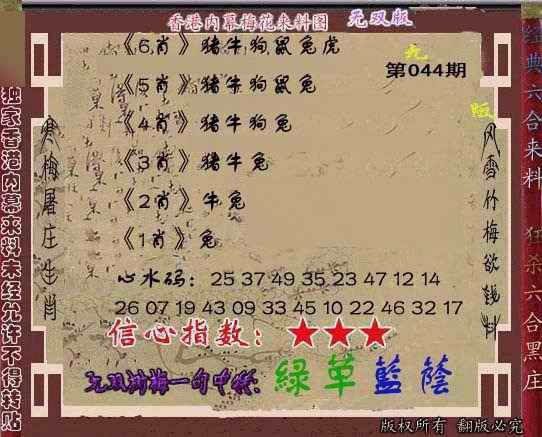 香港内幕梅花来料图 无双版
《6肖》猪牛狗鼠兔虎
第044期
《5肖》猪牛狗鼠兔
《4肖》猪牛狗兔
《3肖》猪牛兔
《2肖》牛兔
《1肖》兔
心水码：25 37 49 35 23 47 12 14
26 07 19 43 09 33 45 10 22 46 32 17
信心指数：★★★
无双测梅一句中特：緑草藍蔭
版权所有 翻版必究
独家香港内幕来料未经允许不得转贴
寒梅屠庄生肖
风雪竹梅欲钱料
经典六合来料 狂杀六合黑庄